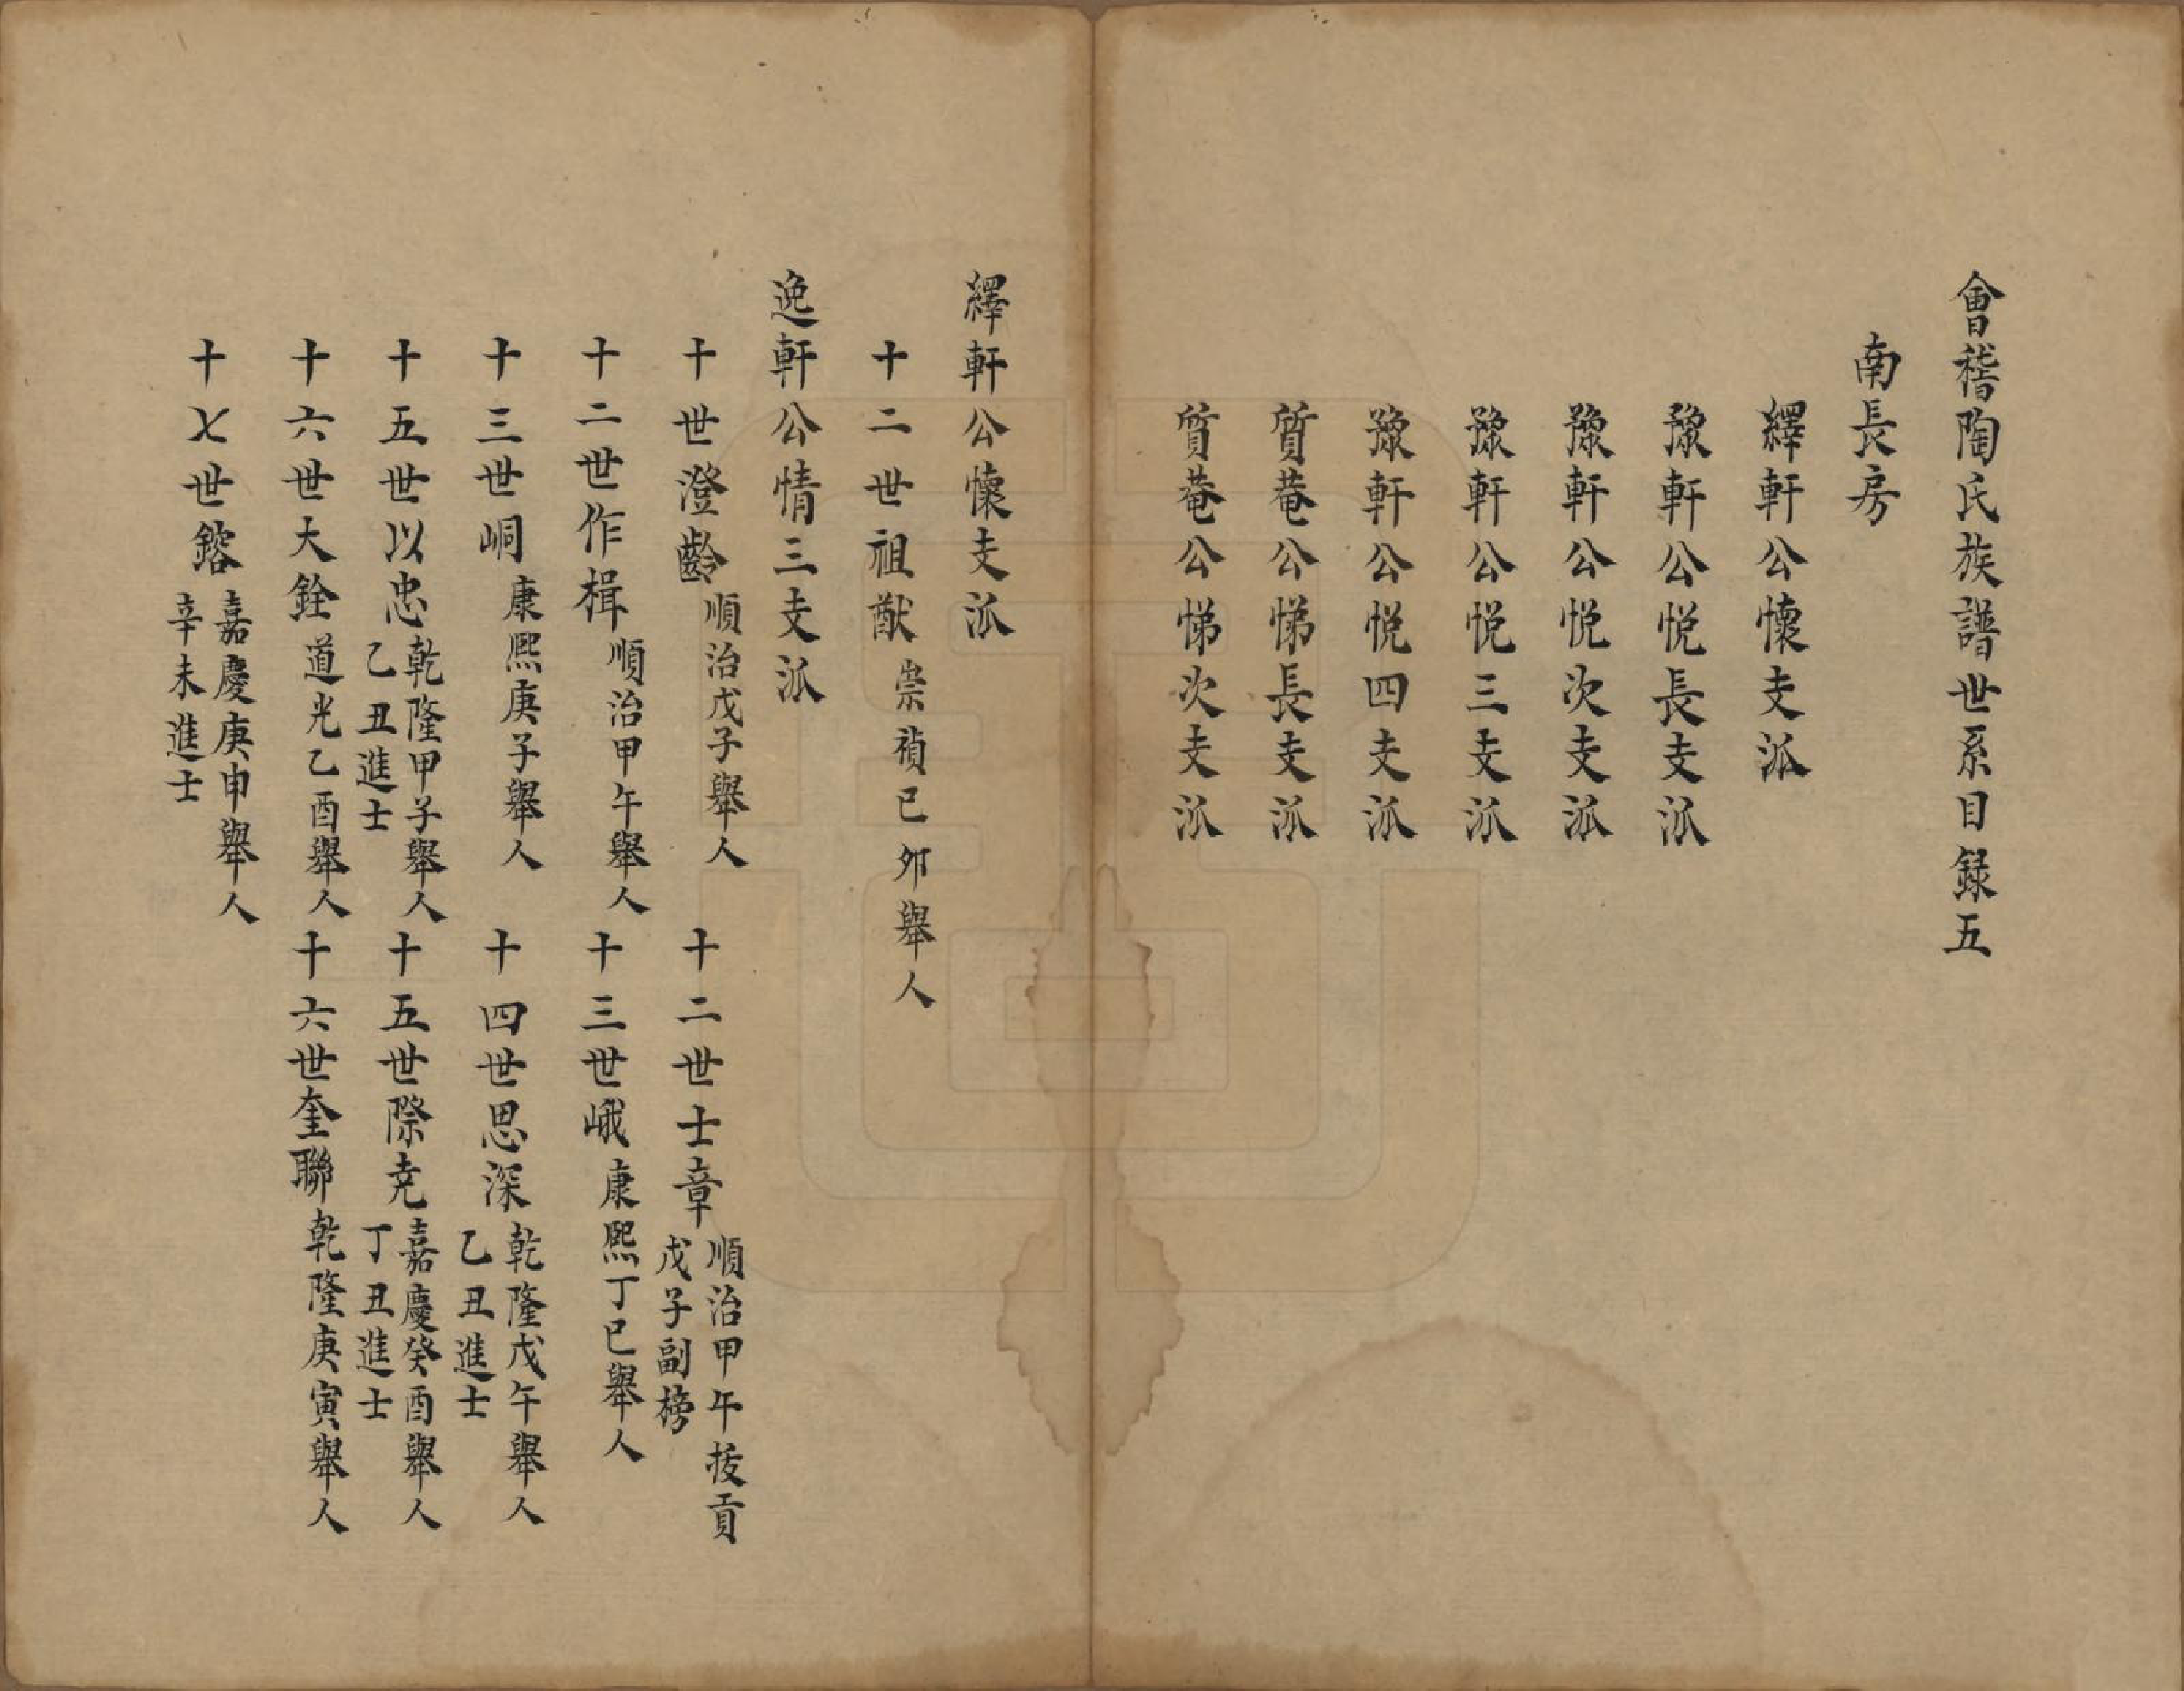 會稽陶氏族譜世系目録五
南長房
繹軒公懷支派
豫軒公悦長支派
豫軒公悦次支派
豫軒公悦三支派
豫軒公悦四支派
質菴公悌長支派
質菴公悌次支派
繹軒公懷支派
十二世祖猷 崇禎己夘舉人
逸軒公情三支派
十世澄齡 順治戊子舉人
十二世士章 順治甲午拔貢
戊子副榜
十二世作楫 順治甲午舉人
十三世峨 康熙丁巳舉人
十三世峒 康熙庚子舉人
十四世思深 乾隆戊午舉人
乙丑進士
十五世以忠 乾隆甲子舉人
乙丑進士
十五世際堯 嘉慶癸酉舉人
丁丑進士
十六世大銓 道光乙酉舉人
十六世奎聯 乾隆庚寅舉人
十七世鎔 嘉慶庚申舉人
辛未進士